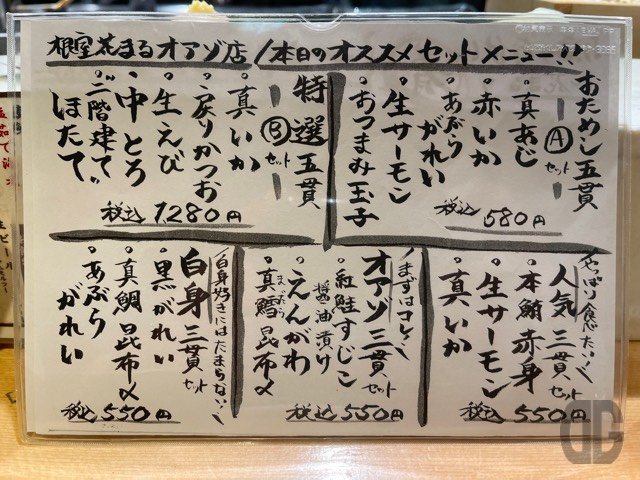 根室花まるオアゾ店 本日のオススメセットメニュー!!
おためし五貫
Ⓐセット
・真あじ
・赤いか
・あぶらがれい
・生サーモン
・おつまみ玉子
税込580円
特選五貫
Ⓑセット
・真いか
・戻りかつお
・生えび
・中とろ
・二階建てほたて
税込1280円
やっぱり食べたい!
人気三貫セット
・本鮪赤身
・生サーモン
・真いか
税込550円
まずはコレ!
オアゾ三貫セット
・紅鮭すじこ醤油漬け
・えんがわ
・真鱈昆布〆
税込550円
白身好きにはたまらない!
白身三貫セット
・黒がれい
・真鯛昆布〆
・あぶらがれい
税込550円
DG